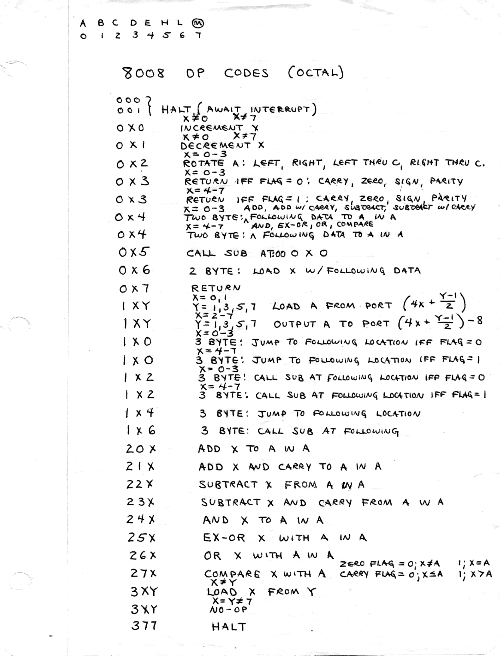 A B C D E H L Ⓜ
0 1 2 3 4 5 6 7
8008 OP CODES (OCTAL)
000 }
001 } HALT (AWAIT INTERRUPT)
X≠0 X≠7
0X0 INCREMENT X
X≠0 X≠7
0X1 DECREMENT X
X=0-3
0X2 ROTATE A: LEFT, RIGHT, LEFT THRU C, RIGHT THRU C.
X=0-3
0X3 RETURN IFF FLAG=0: CARRY, ZERO, SIGN, PARITY
X=4-7
0X3 RETURN IFF FLAG=1: CARRY, ZERO, SIGN, PARITY
X=0-3 ADD, ADD W/ CARRY, SUBTRACT, SUBTRACT W/ CARRY
0X4 TWO BYTE: ^ FOLLOWING DATA TO A IN A
X=4-7 AND, EX-OR, OR, COMPARE
0X4 TWO BYTE: ^ FOLLOWING DATA TO A IN A
0X5 CALL SUB AT 00 0X0
0X6 2 BYTE: LOAD X W/ FOLLOWING DATA
0X7 RETURN
X=0,1
1XY Y=1,3,5,7 LOAD A FROM PORT (4X + Y-1/2)
X=2-7
1XY Y=1,3,5,7 OUTPUT A TO PORT (4X + Y-1/2)-8
X=0-3
1X0 3 BYTE: JUMP TO FOLLOWING LOCATION IFF FLAG=0
X=4-7
1X0 3 BYTE: JUMP TO FOLLOWING LOCATION IFF FLAG=1
X=0-3
1X2 3 BYTE: CALL SUB AT FOLLOWING LOCATION IFF FLAG=0
X=4-7
1X2 3 BYTE: CALL SUB AT FOLLOWING LOCATION IFF FLAG=1
1X4 3 BYTE: JUMP TO FOLLOWING LOCATION
1X6 3 BYTE: CALL SUB AT FOLLOWING
20X ADD X TO A IN A
21X ADD X AND CARRY TO A IN A
22X SUBTRACT X FROM A IN A
23X SUBTRACT X AND CARRY FROM A IN A
24X AND X TO A IN A
25X EX-OR X WITH A IN A
26X OR X WITH A IN A
ZERO FLAG=0; X≠A 1; X=A
27X COMPARE X WITH A CARRY FLAG=0; X≤A 1; X>A
X≠Y
3XY LOAD X FROM Y
X=Y≠7
3XY NO-OP
377 HALT